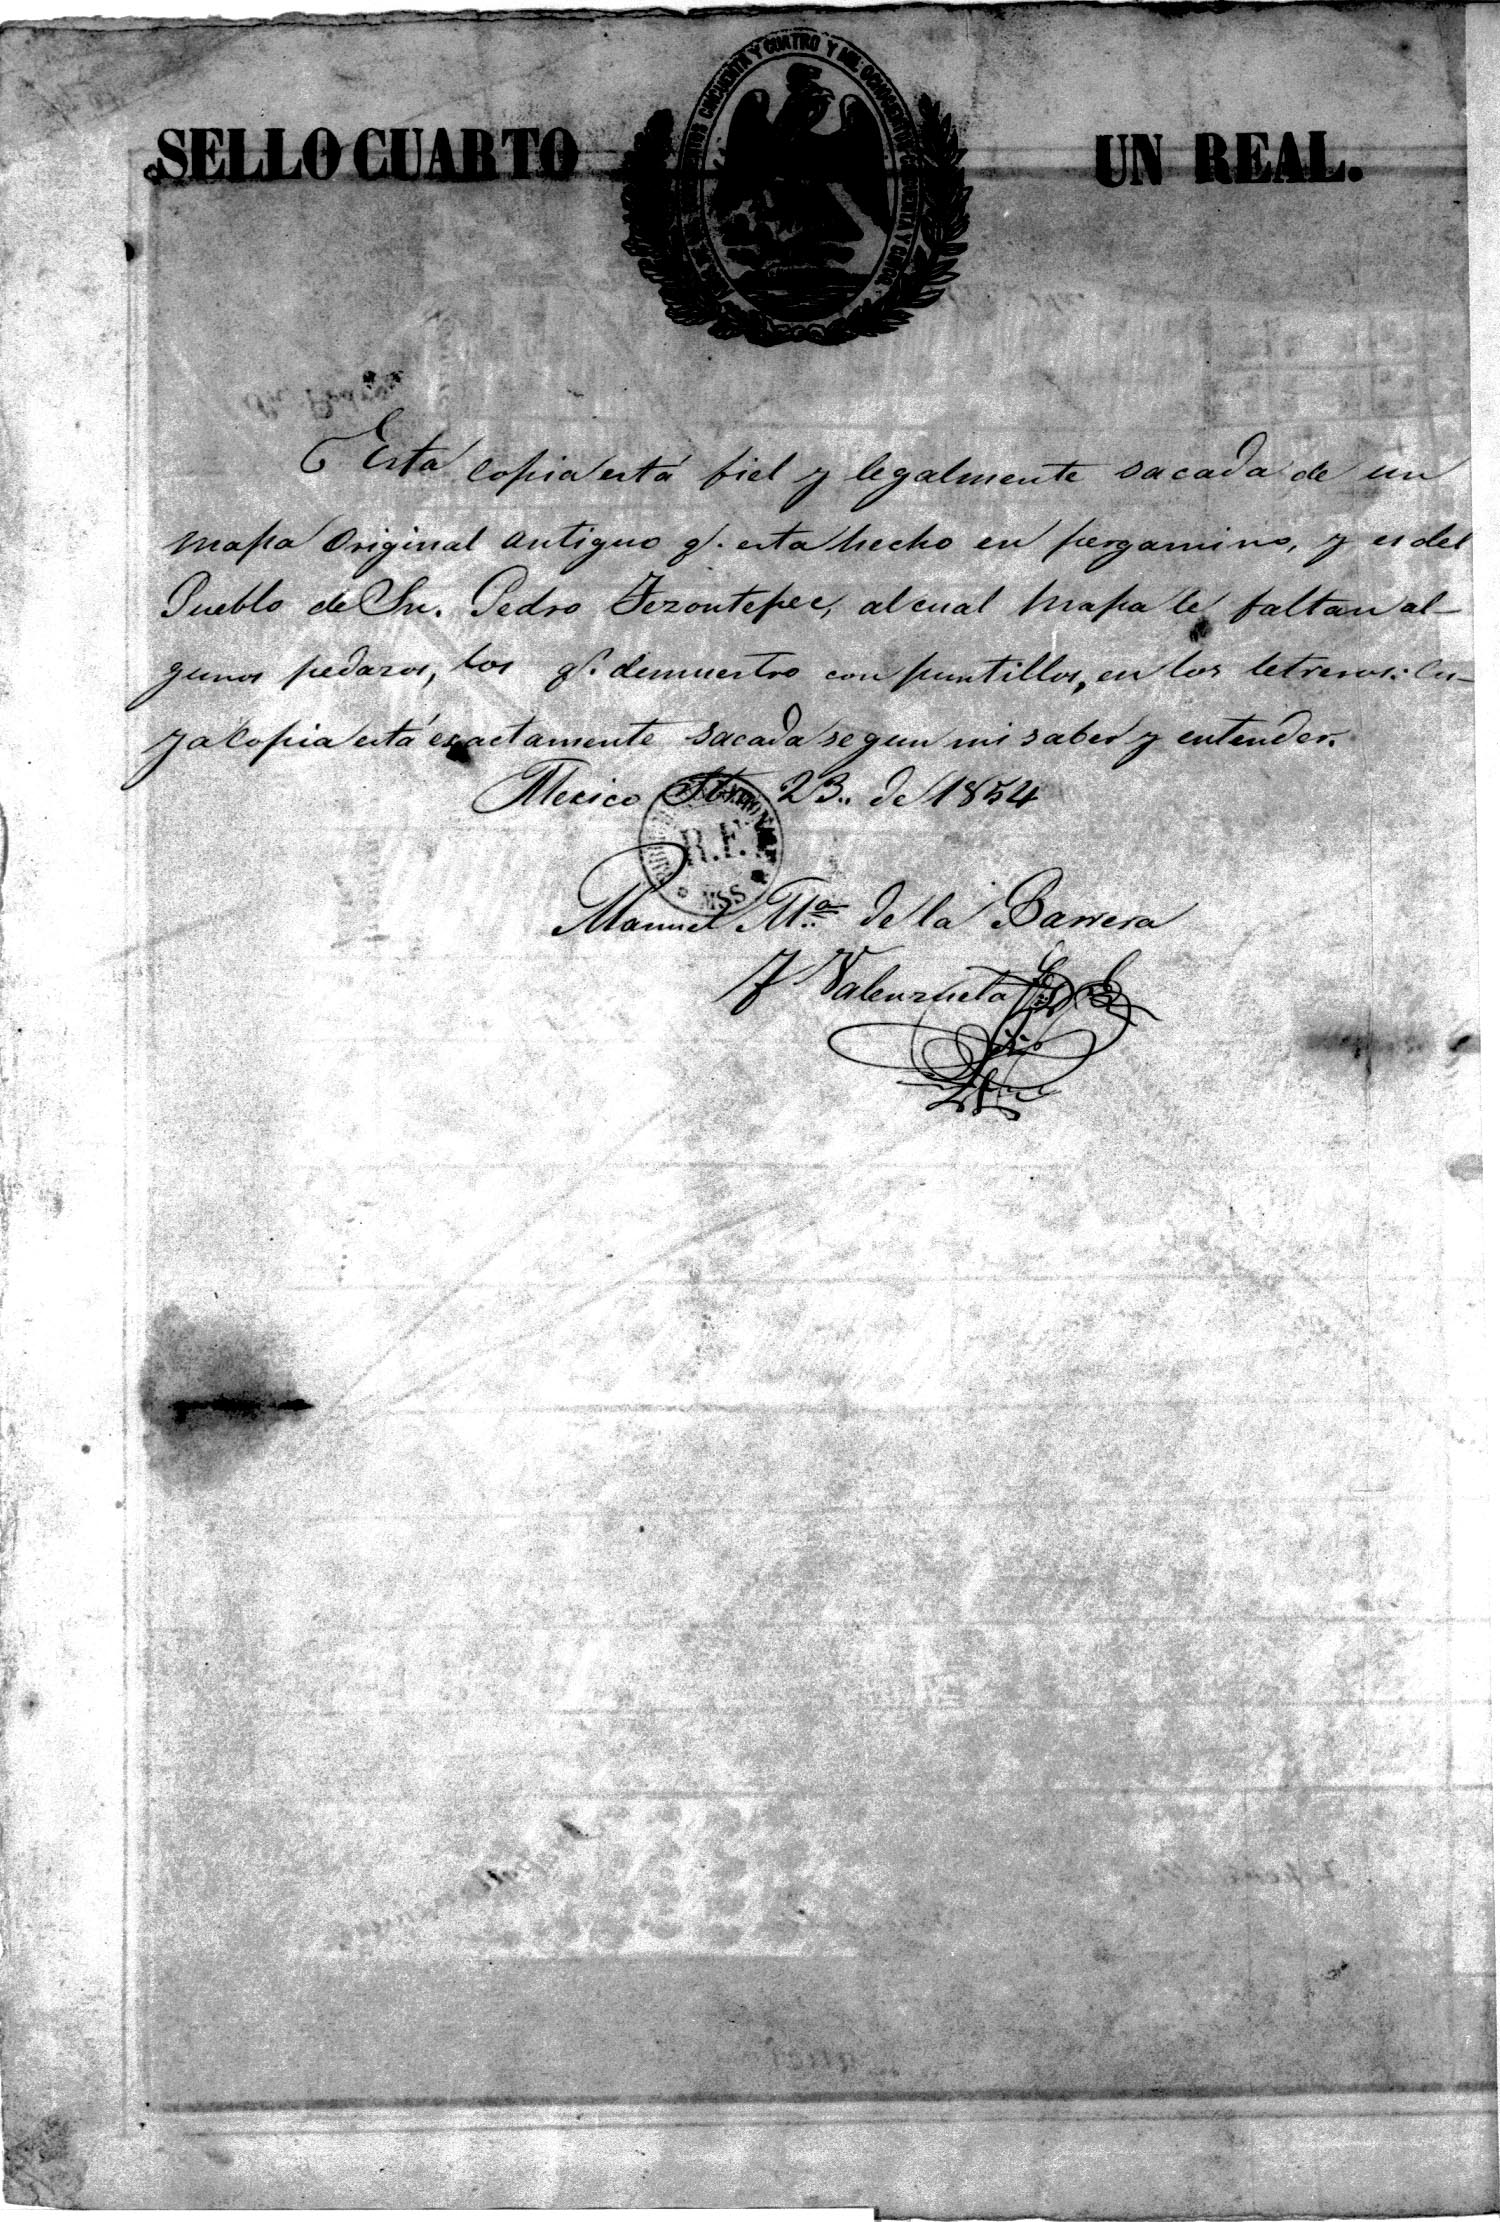 SELLO CUARTO UN REAL.
CINCUENTA Y CUATRO Y MIL OCHOCIENTOS CINCUENTA Y CINCO
Esta copia está fiel y legalmente sacada de un
mapa Original antiguo q.e esta hecho en pergamino, y es del
Pueblo de Sn. Pedro Tezontepec, al cual Mapa le faltan al-
gunos pedazos, los q.e demuestro con puntillos, en los letreros: Cu-
ya Copia está exactamente sacada segun mi saber y entender.
Mexico 23.. de 1854
R.F.
MSS
Manuel M.a de la Barrera
Y Valenzuela